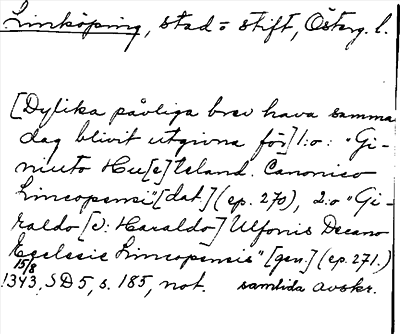 Linköping, stad o stift, Österg. l.
[Dylika påvliga brev hava samma
dag blivit utgivna för] 1:o: "Gi-
niuto Hu[c]teland. Canonico
Lincopensi" [dat.] (ep. 270), 2:o "Gi-
raldo [ɔ: Haraldo] Ulfonis Decano
Ecclesie Lincopensis" [gen.] (ep. 271.)
15/8
1343, SD 5, s. 185, not. samtida avskr.